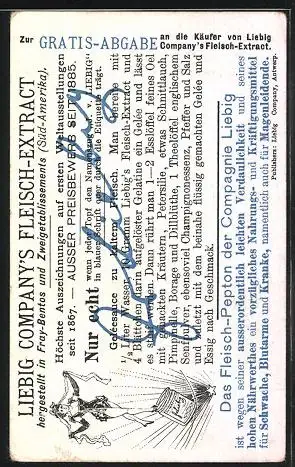 Zur GRATIS-ABGABE an die Käufer von Liebig
Company's Fleisch-Extract.
LIEBIG COMPANY'S FLEISCH-EXTRACT
hergestellt in Fray-Bentos und Zweigetablissements (Süd-Amerika).
Höchste Auszeichnungen auf ersten Weltausstellungen
seit 1867. — AUSSER PREISBEWERB SEIT 1885.
Nur echt wenn jeder Topf den Namenszug J. v. LIEBIG
in blauer Schrift quer durch die Etiquette trägt.
Geléesauce zu kaltem Fleisch. Man bereite mit
Liter Wasser, Gramm Liebig's Fleisch-Extract und
4 Blättchen darin aufgelöster Gelatine ein Gelée und lässt
es steif werden. Dann rührt man 1—2 Esslöffel feines Oel
mit gehackten Kräutern, Petersilie, etwas Schnittlauch,
Pimpinelle, Borage und Dillblüthe, 1 Theelöffel englischem
Senfpulver, ebensoviel Champignonessenz, Pfeffer und Salz
und zuletzt mit dem beinahe flüssig gemachten Gelée und
Essig nach Geschmack.
Das Fleisch-Pepton der Compagnie Liebig
ist wegen seiner ausserordentlich leichten Verdaulichkeit und seines
hohen Nährwerthes ein vorzügliches Nahrungs- und Kräftigungsmittel
für Schwache, Blutarme und Kranke, namentlich auch für Magenleidende.
Publishers: Liebig Company, Antwerp.